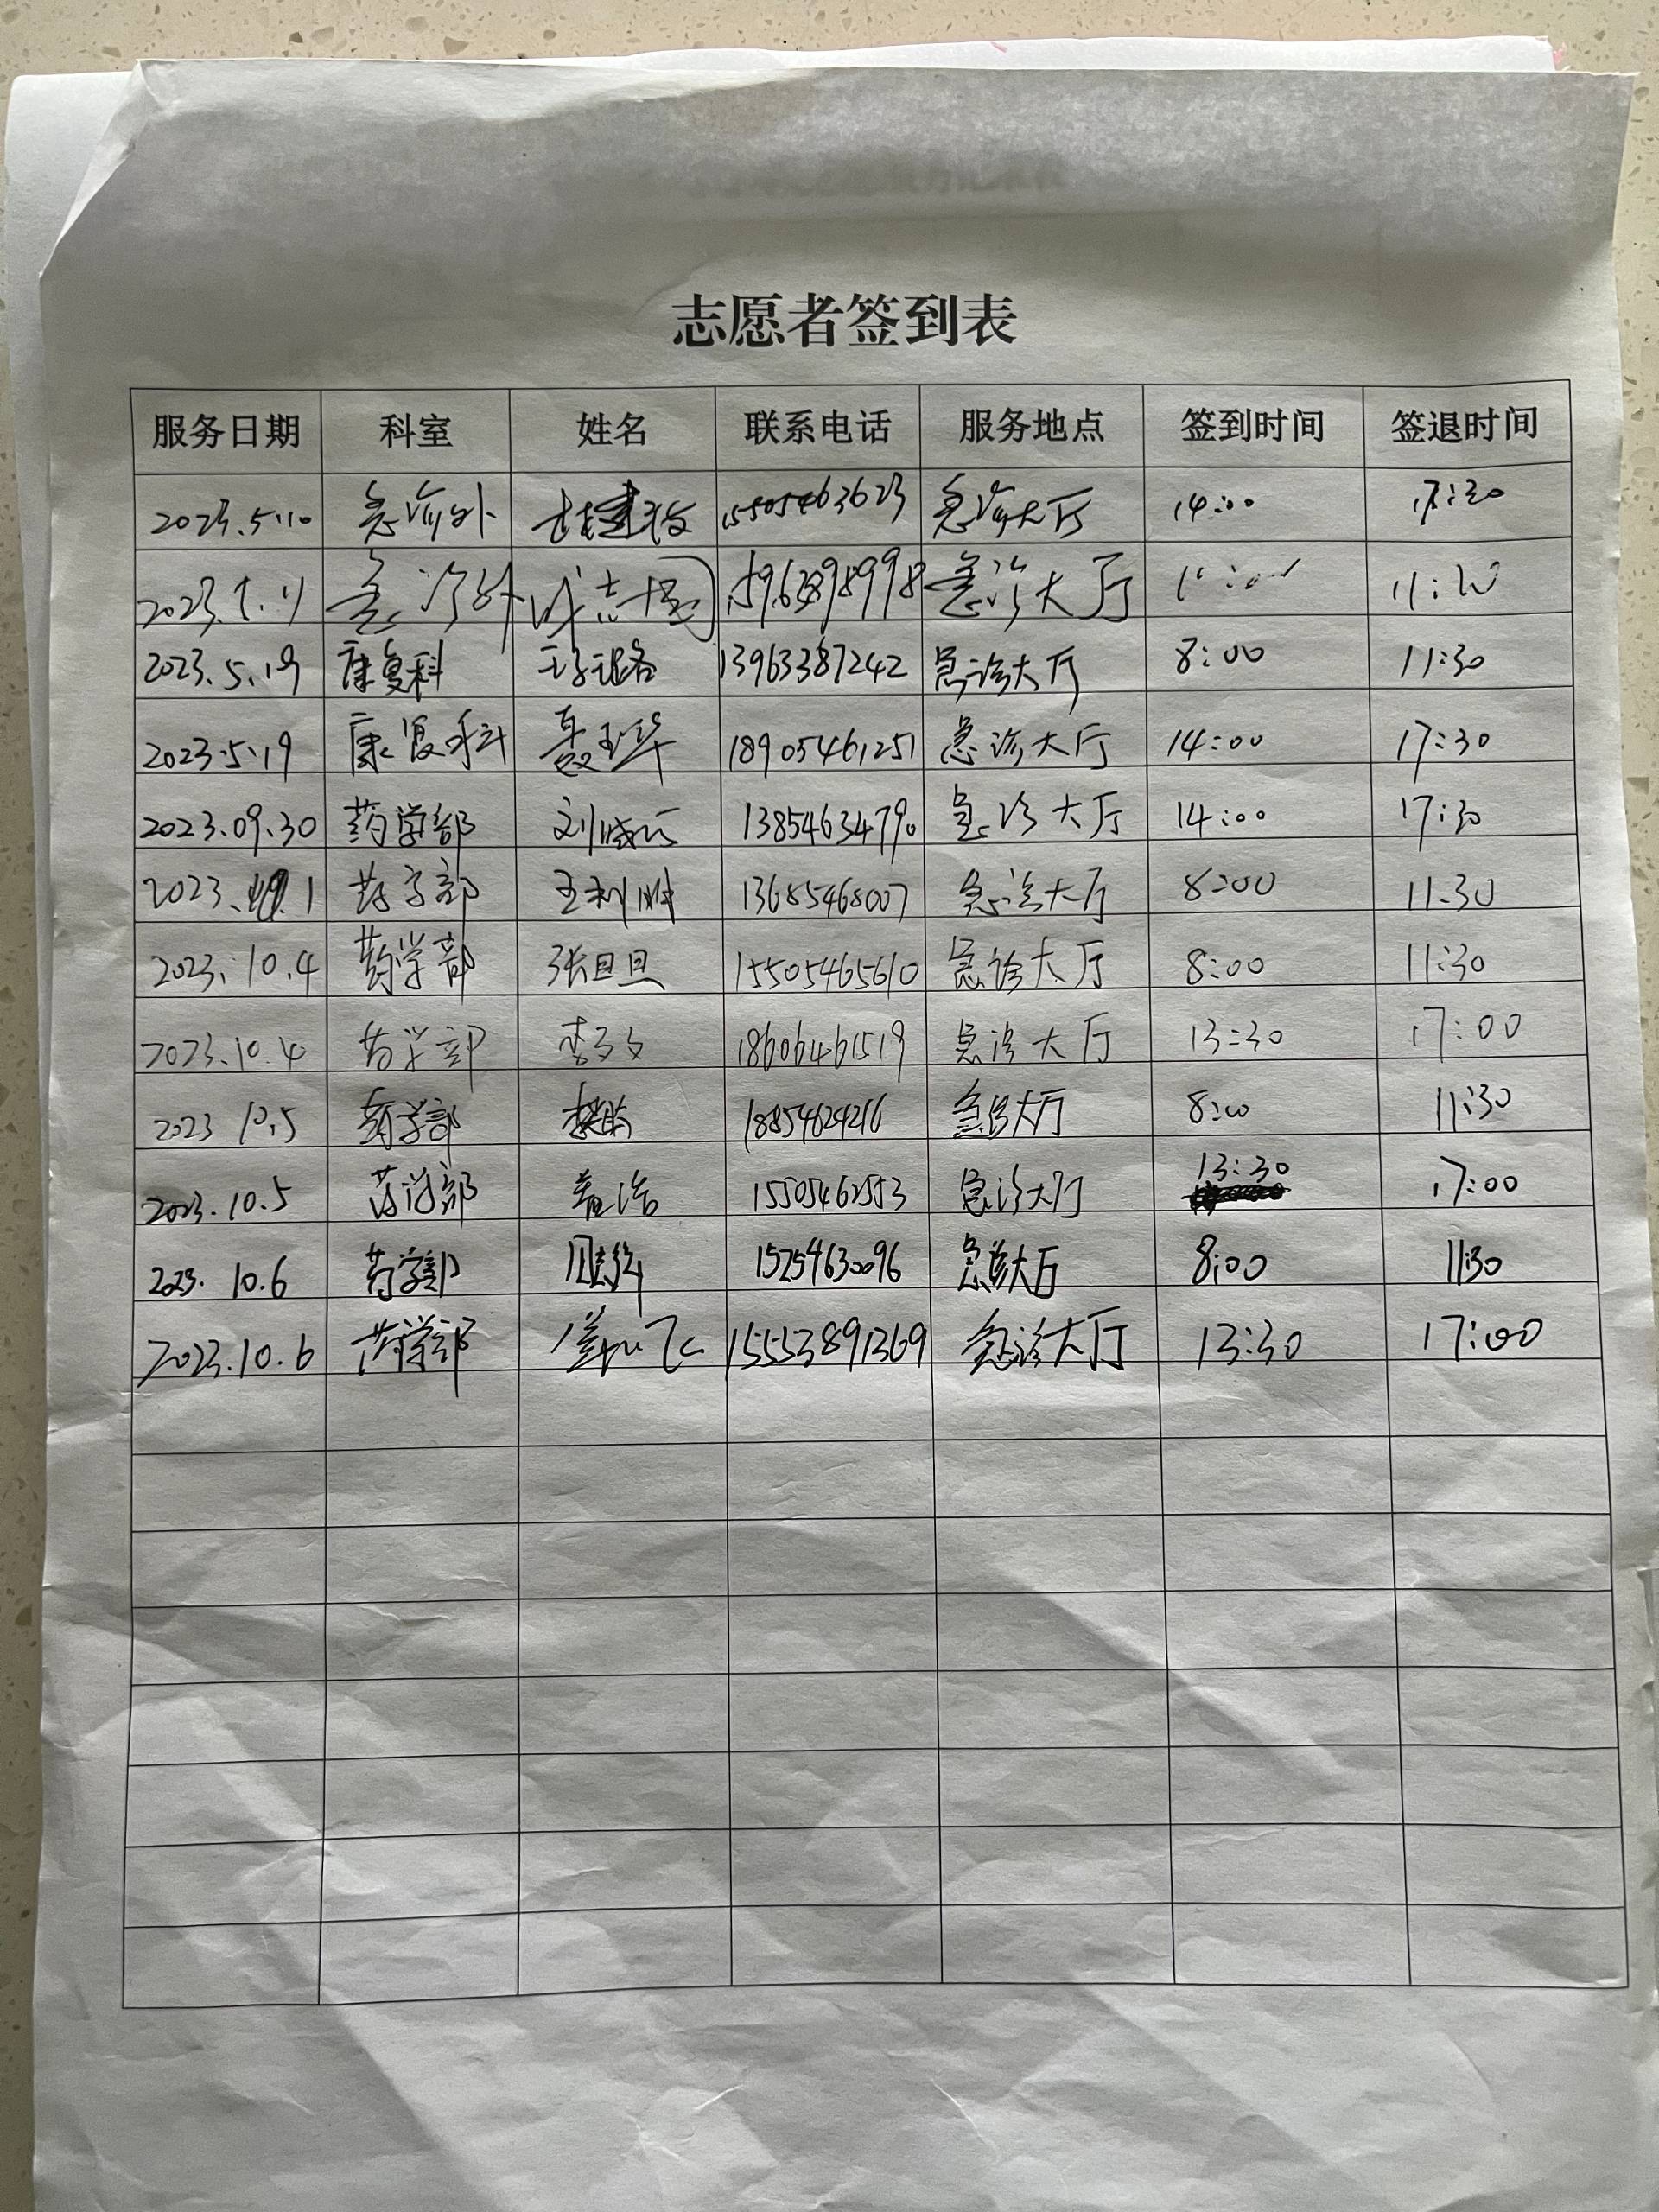 志愿者签到表
服务日期 科室 姓名 联系电话 服务地点 签到时间 签退时间
2023.5.10 急诊外 15505463623 急诊大厅 14:00 17:30
急诊外 急诊大厅
2023.5.19 康复科 13963387242 急诊大厅 8:00 11:30
2023.5.19 康复科 聂玉华 18905461251 急诊大厅 14:00 17:30
2023.09.30 药学部 13854634790 急诊大厅 14:00 17:30
药学部 王利胜 13685468007 急诊大厅 8:00 11:30
2023.10.4 药学部 张旦旦 15505465610 急诊大厅 8:00 11:30
2023.10.4 药学部 李文文 18606461519 急诊大厅 13:30 17:00
2023 10.5 药学部 18854624216 急诊大厅 8:00 11:30
2023.10.5 药学部 急诊大厅 13:30 17:00
2023.10.6 药学部 15254630096 急诊大厅 8:00 11:30
2023.10.6 药学部 15553891369 急诊大厅 13:30 17:00